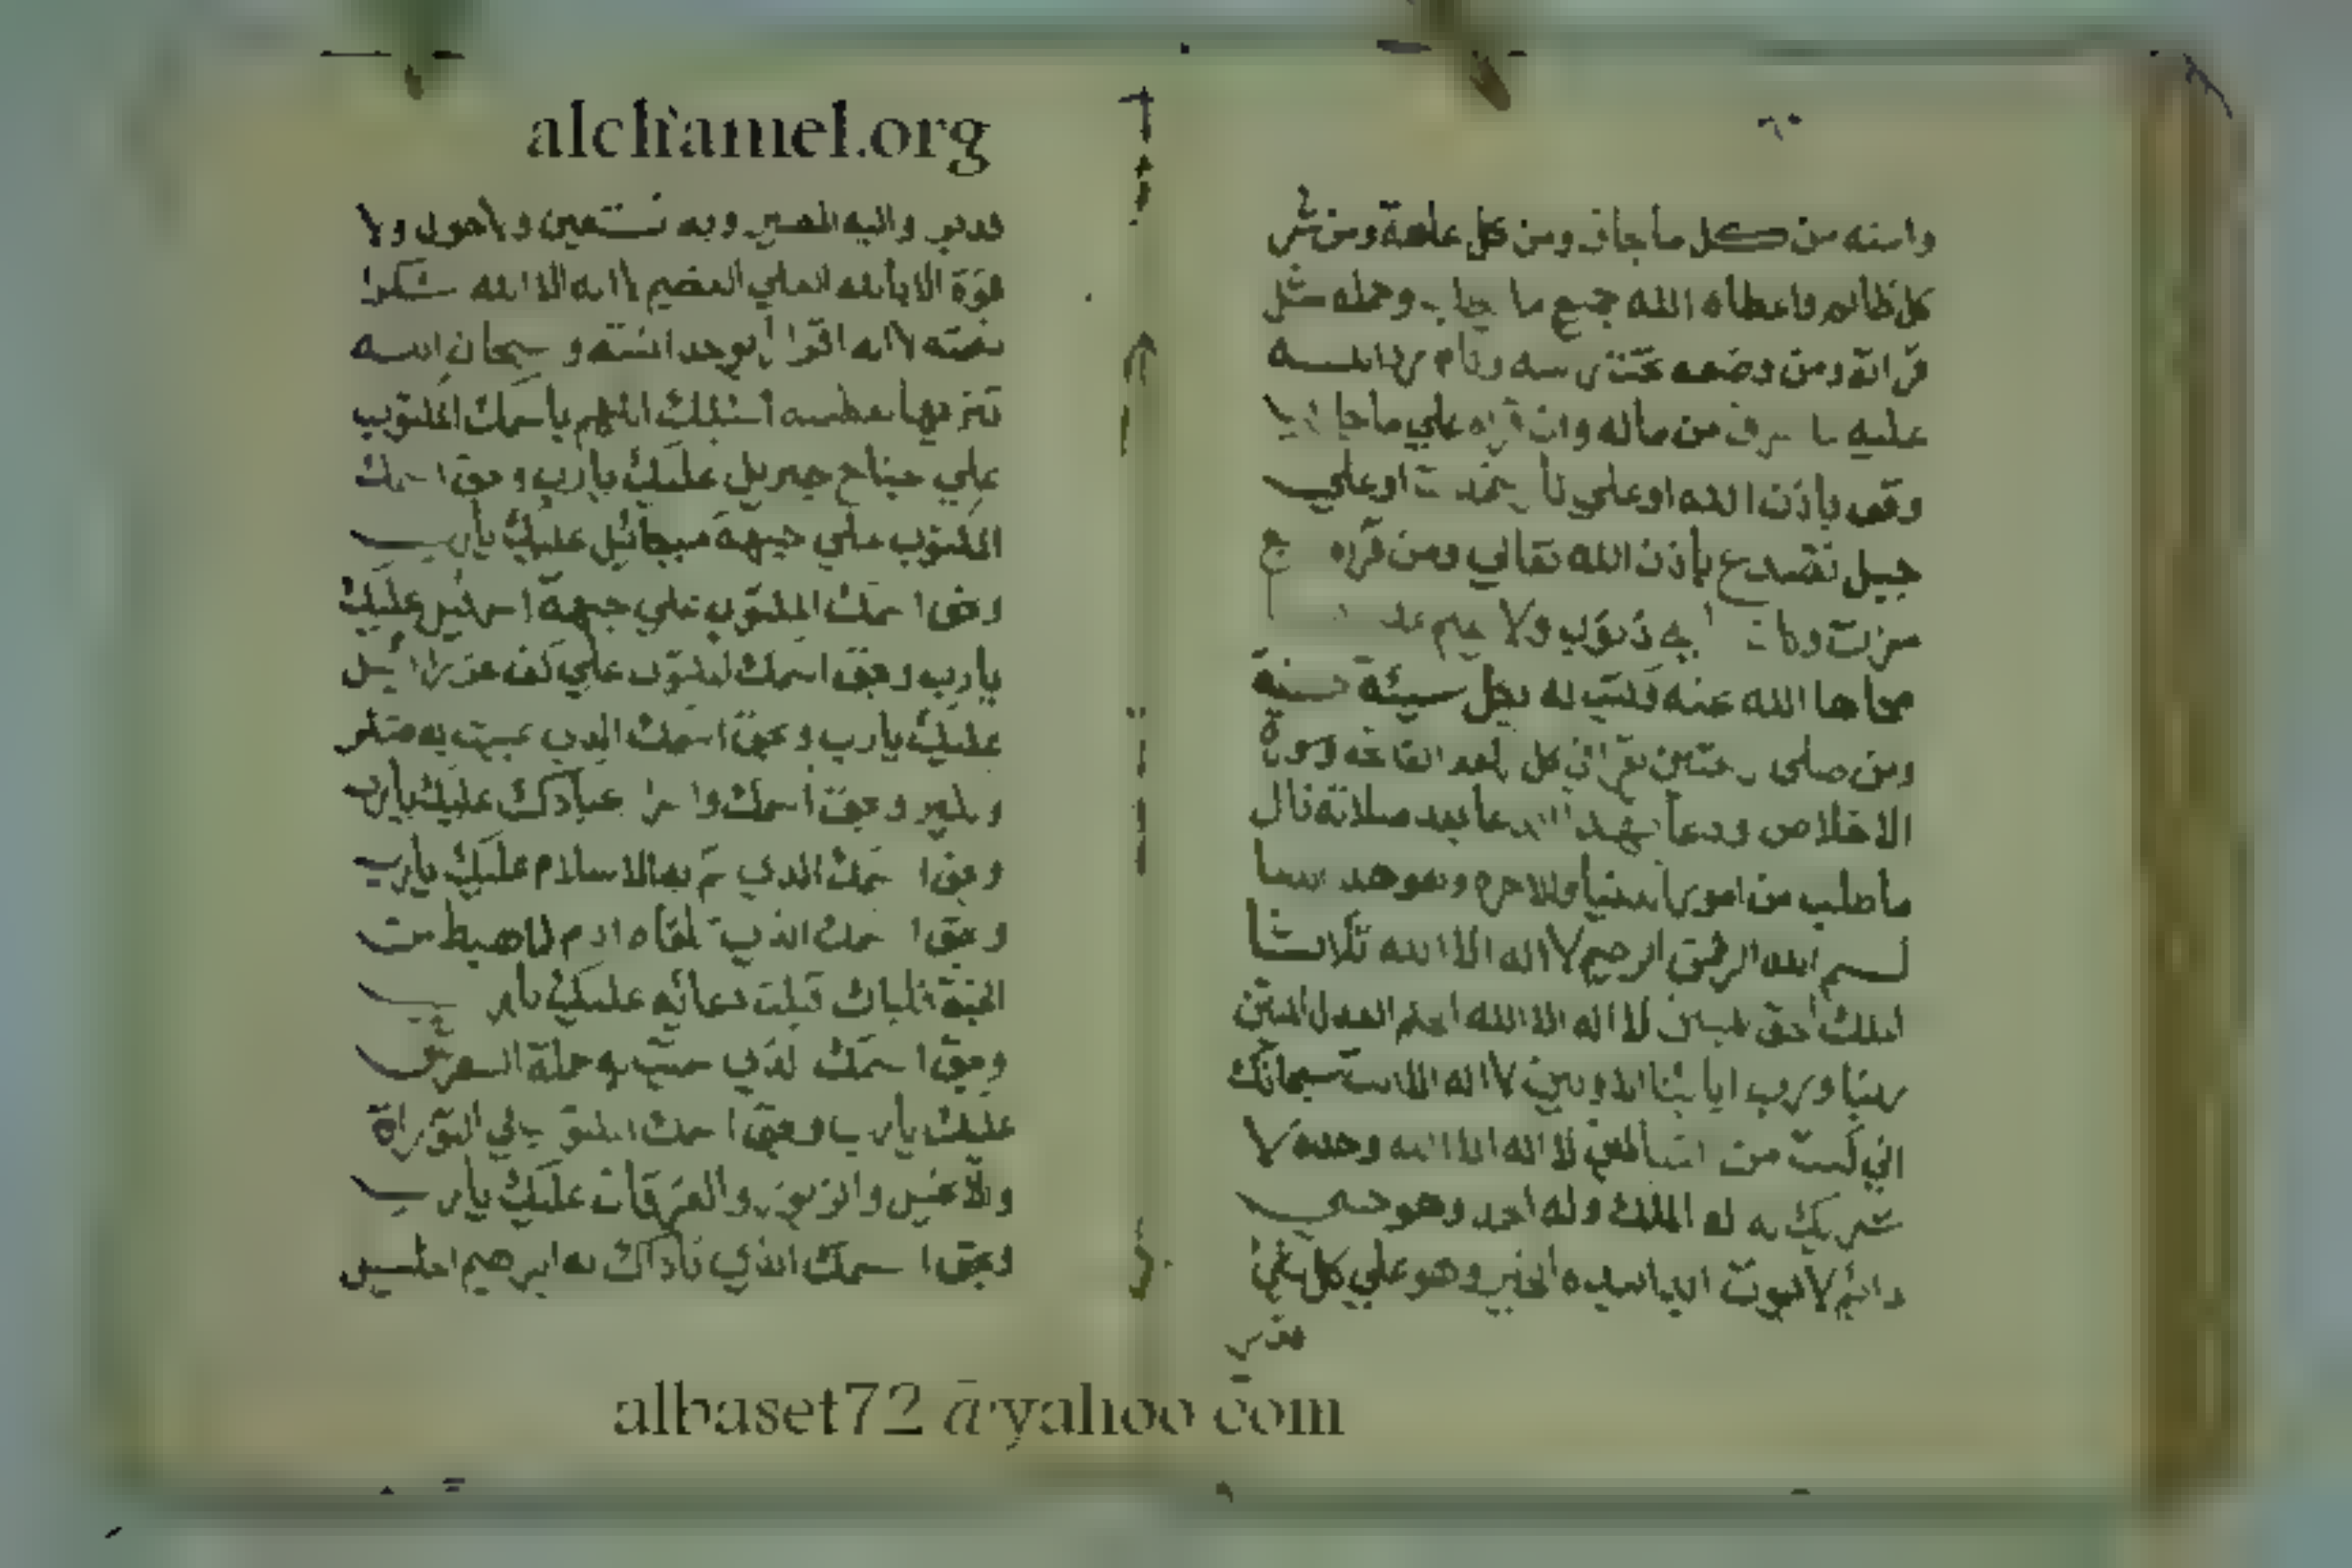 وامنه من كل ما يخاف ومن كل علمة ومن شر
كل ظالم واعطاه الله جميع ما وحمله مثل
قرانه ومن وضعه تحت راسه ونام
عليه من ماله وان قراه علي ماجا
وقف باذن الله اوعلي اوعلي
جبل تصدع باذن الله تعالي ومن قراه
مرات ذنوب ولا
محاها الله عنه وكتب له بكل سيئة حسنة
ومن صلي ركعتين يقرا في كل الفاتحه وسورة
الاخلاص ودعا بهذا الدعا بعد صلاته نال
ما طلب من امور الدنيا والاخره وهو هذ الدعا
بسم الله الرحمن الرحيم لا اله الا الله ثلاثا
الملك الحق المبين لا اله الا الله الحكم العدل المتين
ربنا ورب ابائنا الاولين لا اله الا انت سبحانك
اني كنت من الظالمين لا اله الا الله وحده لا
شريك له له الملك وله الحمد وهو حي
دايم لا يموت ابدا بيده الخير وهو علي كل شي
قدير
alchamel.org
قدير واليه المصير وبه نستعين ولا حول ولا
قوة الا بالله العلي العظيم لا اله الا الله شكرا
نعمته لا اله اقرارا بوحدانيته وسبحان الله
تنزيها لعظمته اسئلك اللهم باسمك المكتوب
علي جناح جبريل عليك يارب وبحق اسمك
المكتوب علي جبهة ميكائيل عليك يارب
وبحق اسمك المكتوب علي جبهة اسرافيل عليك
يارب وبحق اسمك المكتوب علي كف عزرائيل
عليك يارب وبحق اسمك الذي سميت به منكر
ونكير وبحق اسمك واسرار عبادك عليك يارب
وبحق اسمك الذي تم به الاسلام عليك يارب
وبحق اسمك الذي تلقاه ادم لما هبط من
الجنة فلباك قبلت دعائه عليك يارب
وبحق اسمك الذي حملة العرش
عليك يارب وبحق اسمك المكتوب في التوراة
والانجيل والزبور والفرقان عليك يارب
وبحق اسمك الذي ناداك به ابراهيم الخليل
albaset72@yahoo.com